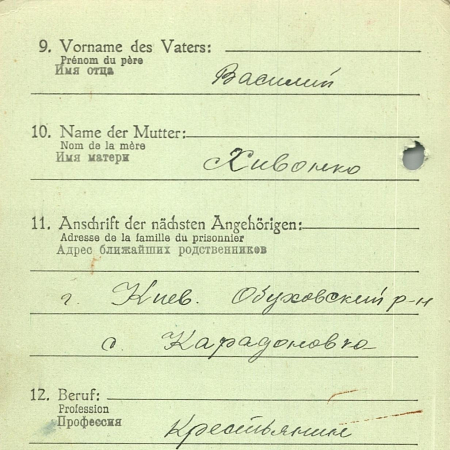 9. Vorname des Vaters:
Prénom du père
Имя отца
Василий
10. Name der Mutter:
Nom de la mère
Имя матери
Хивонко
11. Anschrift der nächsten Angehörigen:
Adresse de la famille du prisonnier
Адрес ближайших родственников
г. Киев. Обуховский р-н
с. Карадоновко
12. Beruf:
Profession
Профессия
Крестьянин